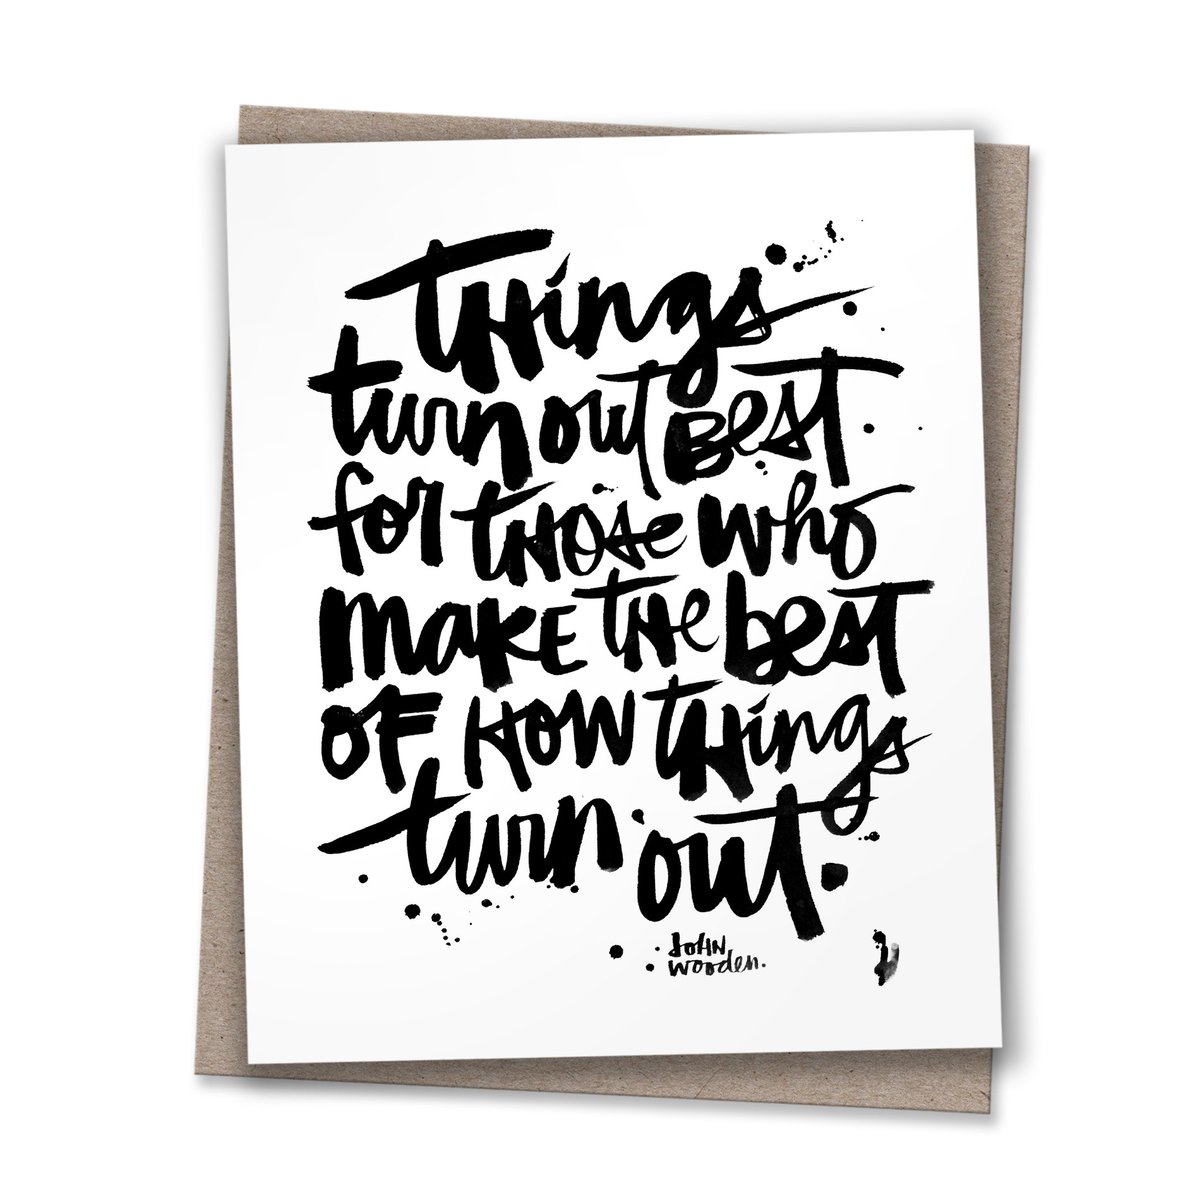 THings
turn out Best
for THOSe who
makE THe best
OF HOW THings
turn out.
JOHN
Wooden.